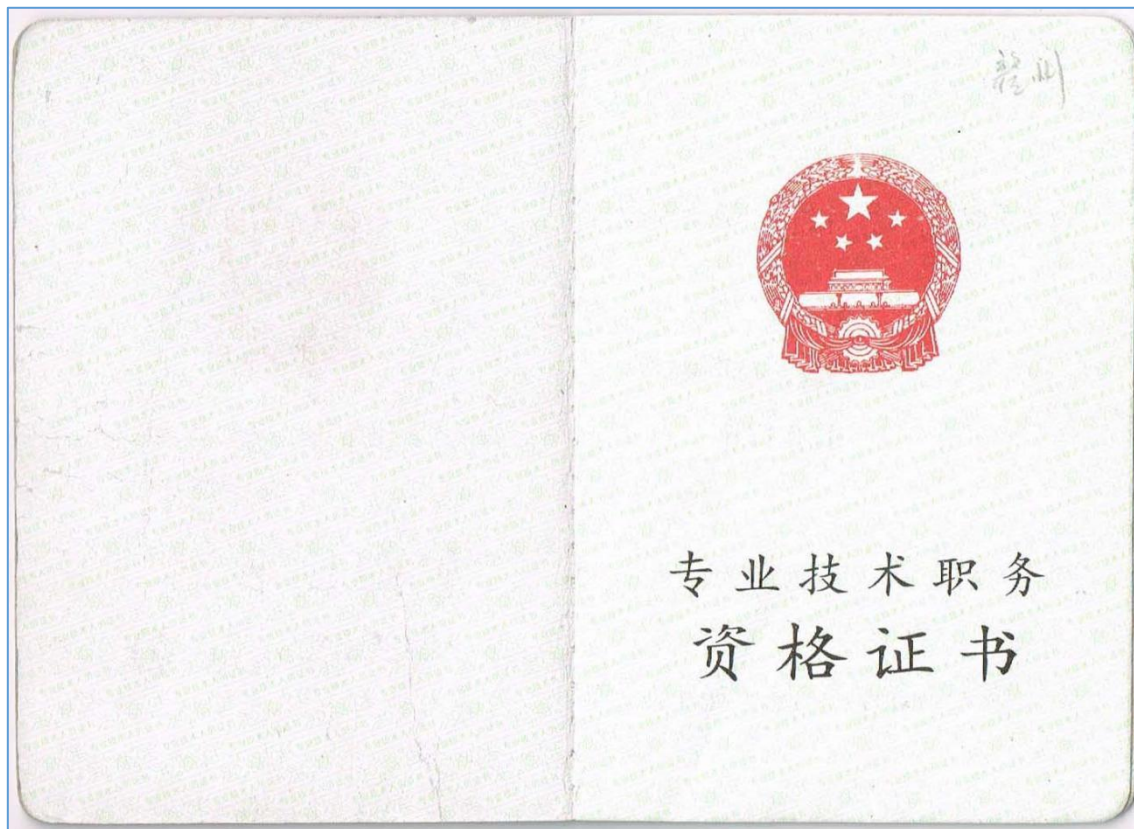 专业技术职务
资格证书